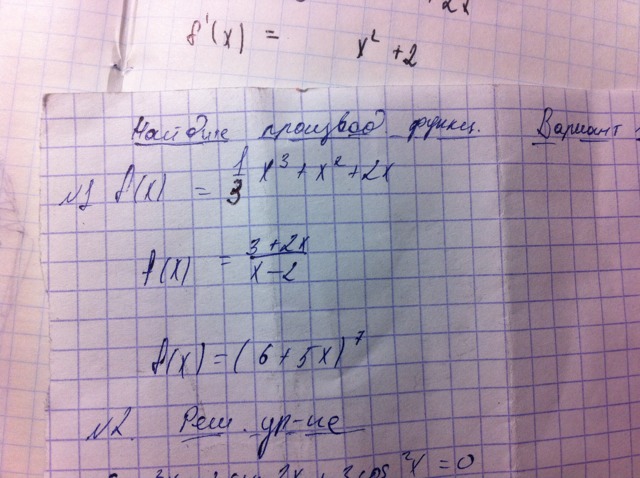 2x
f'(x) = x² + 2
Найдите производ функц. Вариант
№1 f(x) = 1/3 x³ + x² + 2x
f(x) = (3+2x)/(x-2)
f(x) = (6+5x)⁷
№2. Реш. ур-ие
²x = 0